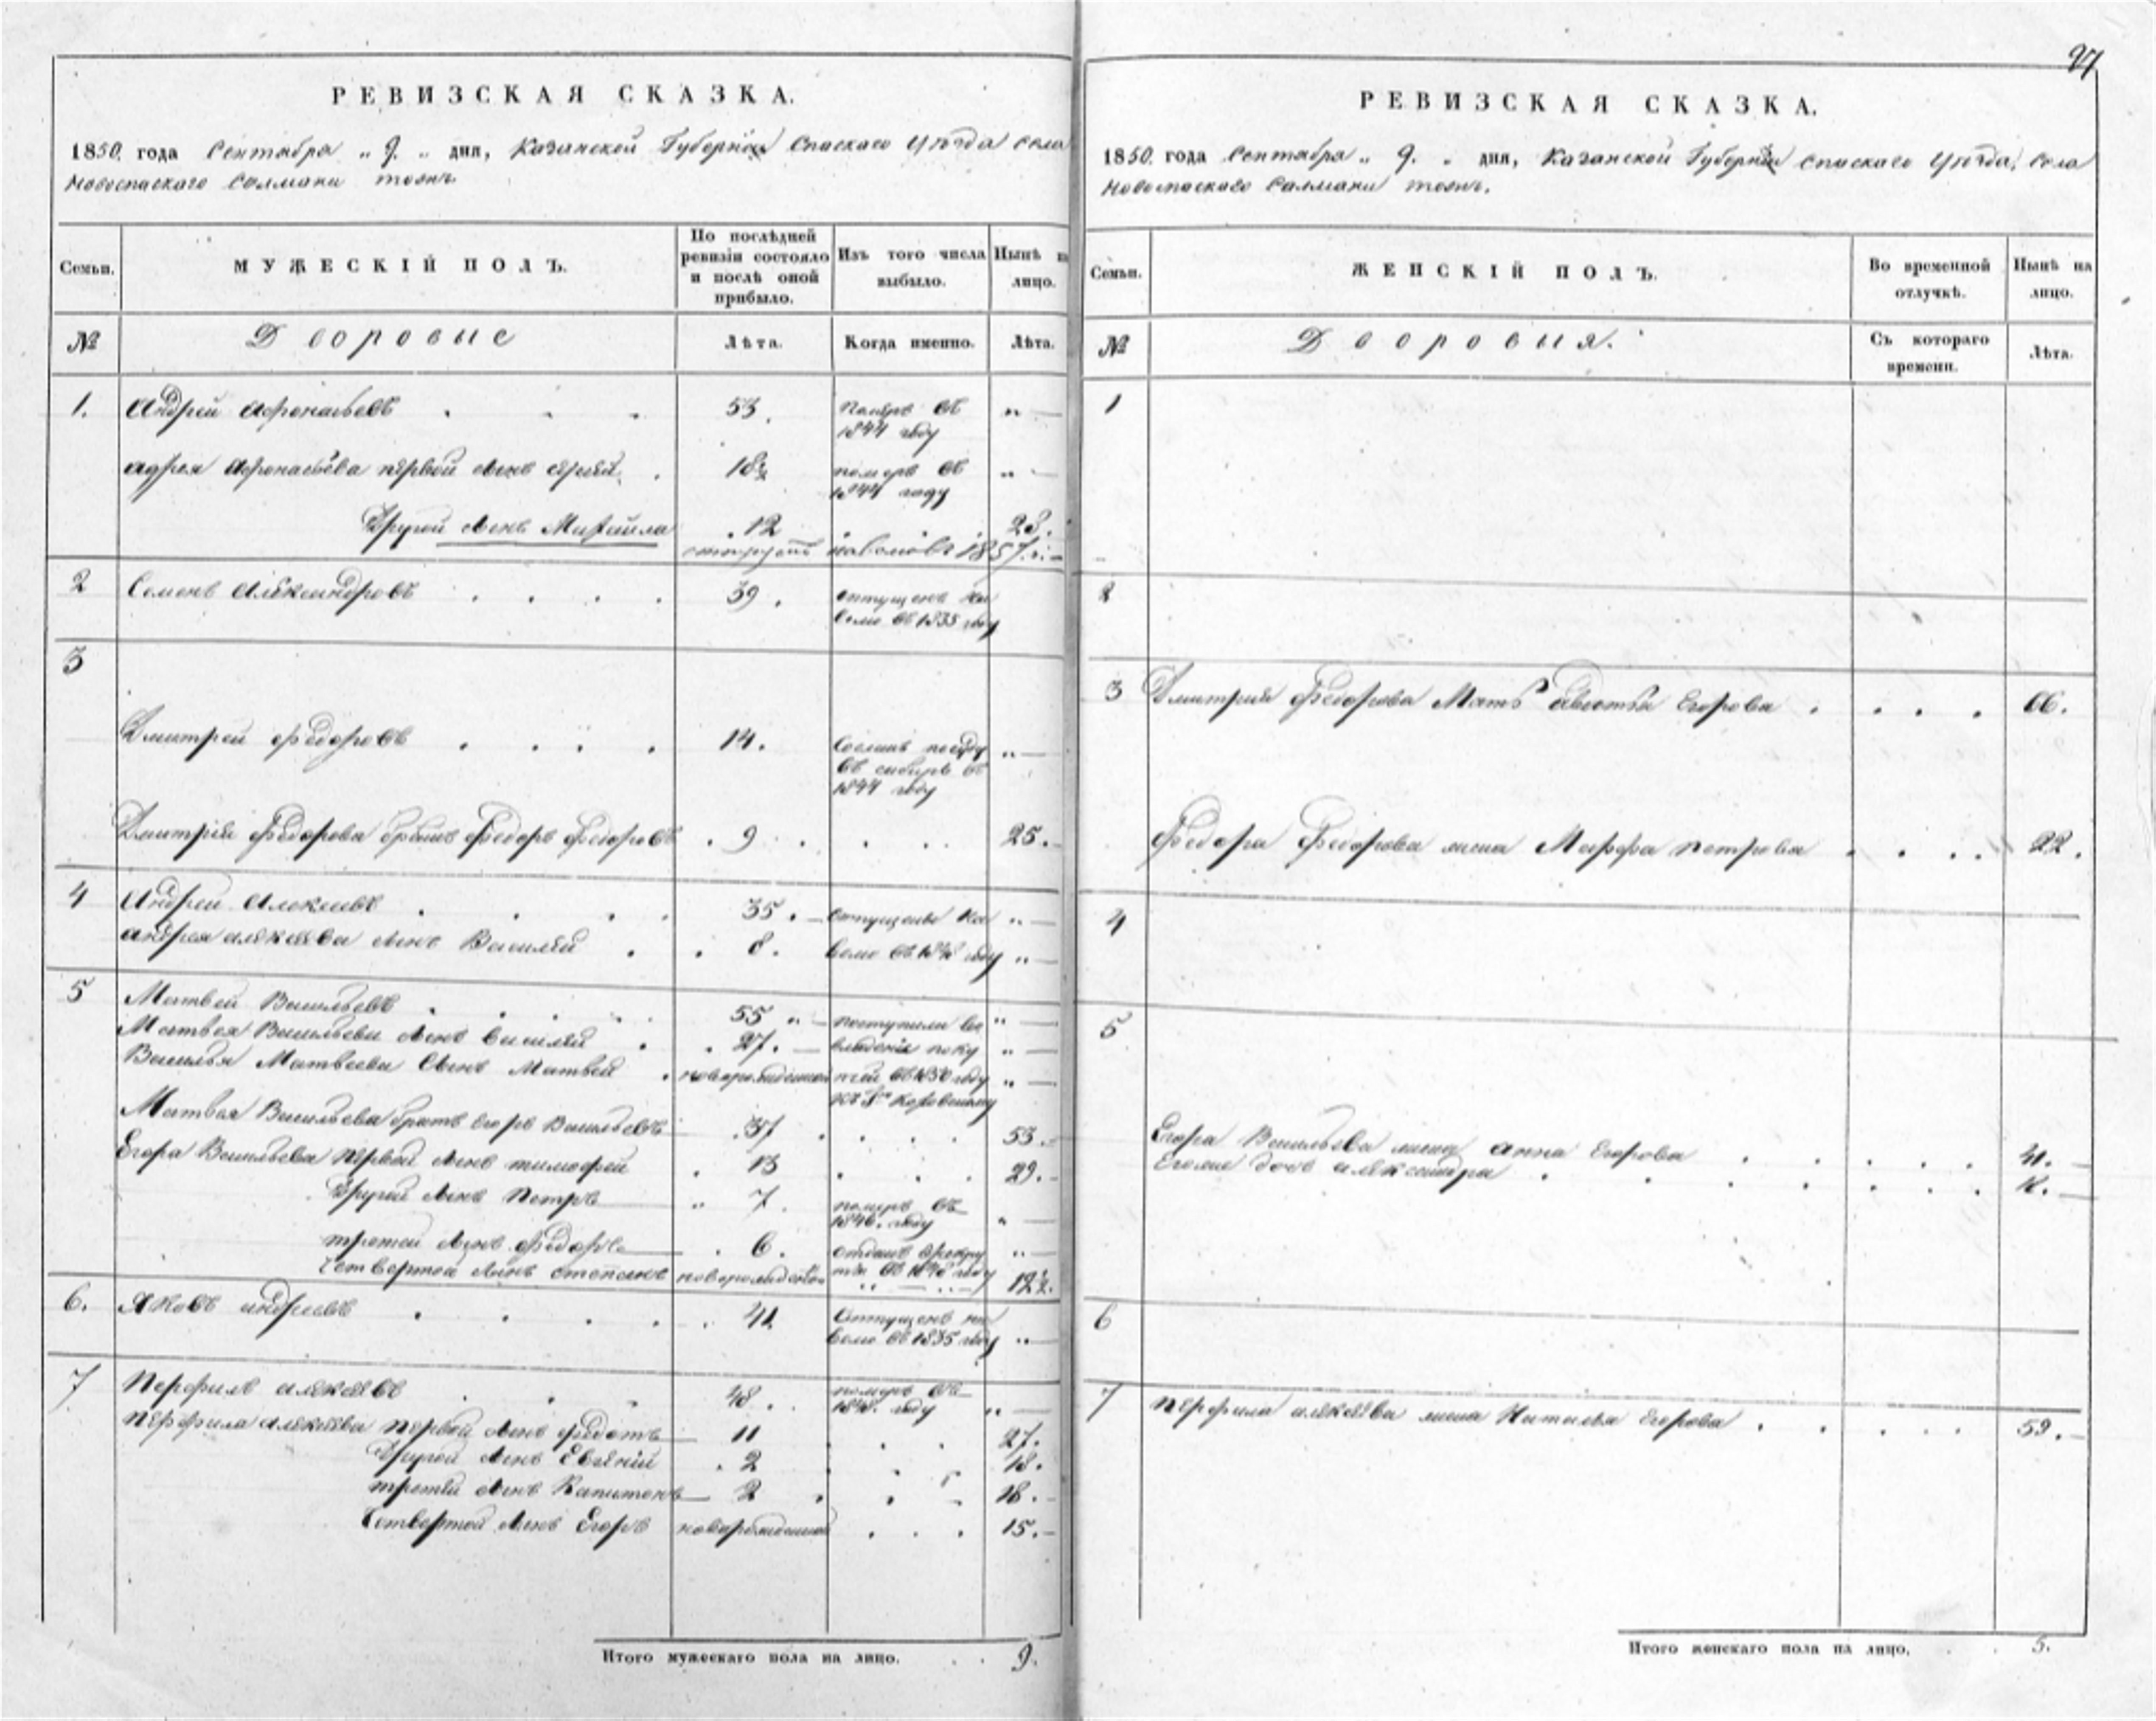 РЕВИЗСКАЯ СКАЗКА.
1850. года Сентября „ 9. „ дня, Казанской Губернии Спаскаго Уѣзда села
Новоспаскаго Салманы тожъ.
Семьи.
МУЖЕСКІЙ ПОЛЪ.
По послѣдней
ревизіи состояло
и послѣ оной
прибыло.
Изъ того числа
выбыло.
Нынѣ на
лицо.
№
Дворовые
Лѣта.
Когда именно.
Лѣта.
1. Андрей Афонасьевъ 53. померъ въ „ —
1844 году
Афонасьева первой сынъ 18½ померъ въ „ —
1844 году
Другой сынъ Михайла 12 23.
1857.
2 Семенъ Александровъ 39. отпущенъ на
волю въ 1835 году
3
Дмитрей Федоровъ 14. Сосланъ „ —
въ сибирь въ
1844 году
Дмитрія Федорова братъ Федоръ Федоровъ 9 25.
4 Андрей Алексеевъ 35. отпущены на „ —
андрея алексеева сынъ Василей 8. волю въ 1848 году „
5 Матвей Васильевъ 55 „ поступили во „ —
Матвея Васильева сынъ Василей 27. владение поку „ —
Василья Матвеева Сынъ Матвей новорожденной въ 1850 году „ —
Матвея Васильева братъ Егоръ Васильевъ 37 53.
Егора Васильева первой сынъ тимофей 13 29.
Другой сынъ Петръ „ 7. померъ въ
1846. году „ —
третей сынъ Федоръ 6. отданъ в рекру „ —
Четвертой сынъ степанъ новорожденной ты въ 1848 году 12½.
6. Яковъ андреевъ 41 Отпущенъ на
волю въ 1835 году „ —
7 Перфилъ алексѣевъ 48. померъ въ
1848. году „ —
Перфила алексеева первой сынъ федотъ 11 27.
Другой сынъ Евгений 2 18.
третей сынъ Капитонъ 2 18.
Четвертой сынъ Егоръ новорожденной 15.
Итого мужескаго пола на лицо. 9.
27
РЕВИЗСКАЯ СКАЗКА.
1850. года Сентября „ 9. „ дня, Казанской Губернии Спаскаго Уѣзда, села
Новоспаскаго Салманы тожъ.
Семьи.
ЖЕНСКІЙ ПОЛЪ.
Во временной
отлучкѣ.
Нынѣ на
лицо.
№
Дворовыя.
Съ котораго
времени.
Лѣта.
1
2
3 Дмитрия Федорова Мать Егорова 66.
Федора Федорова жена Марфа петрова 22.
4
5
Егора Васильева жена анна Егорова 41.
дочь александра
6
7 Перфила алексеева жена Наталья Егорова 59.
Итого женскаго пола на лицо. 5.